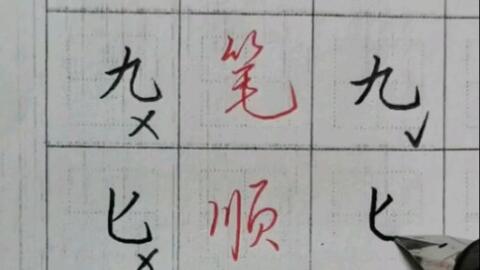 九 笔 九
匕 顺 匕